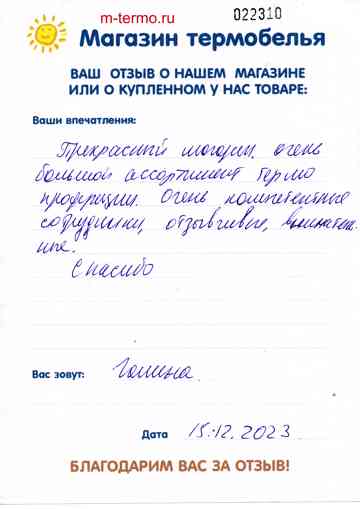 m-termo.ru
022310
Магазин термобелья
ВАШ ОТЗЫВ О НАШЕМ МАГАЗИНЕ
ИЛИ О КУПЛЕННОМ У НАС ТОВАРЕ:
Ваши впечатления:
Прекрасный магазин, очень
большой ассортимент термо
продукции. Очень компетентные
сотрудники, отзывчивые, вниматель
ные.
Спасибо
Вас зовут: Галина.
Дата 15.12.2023
БЛАГОДАРИМ ВАС ЗА ОТЗЫВ!